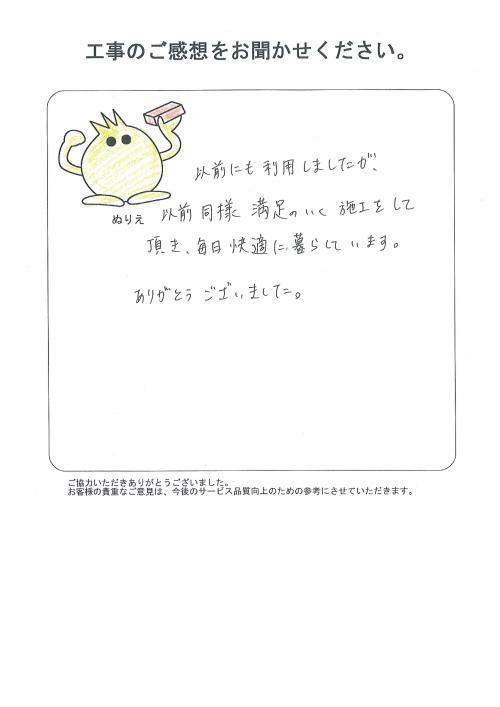 工事のご感想をお聞かせください。
以前にも利用しましたが、
ぬりえ
以前同様満足のいく施工をして
頂き、毎日快適に暮らしています。
ありがとうございました。
ご協力いただきありがとうございました。
お客様の貴重なご意見は、今後のサービス品質向上のための参考にさせていただきます。